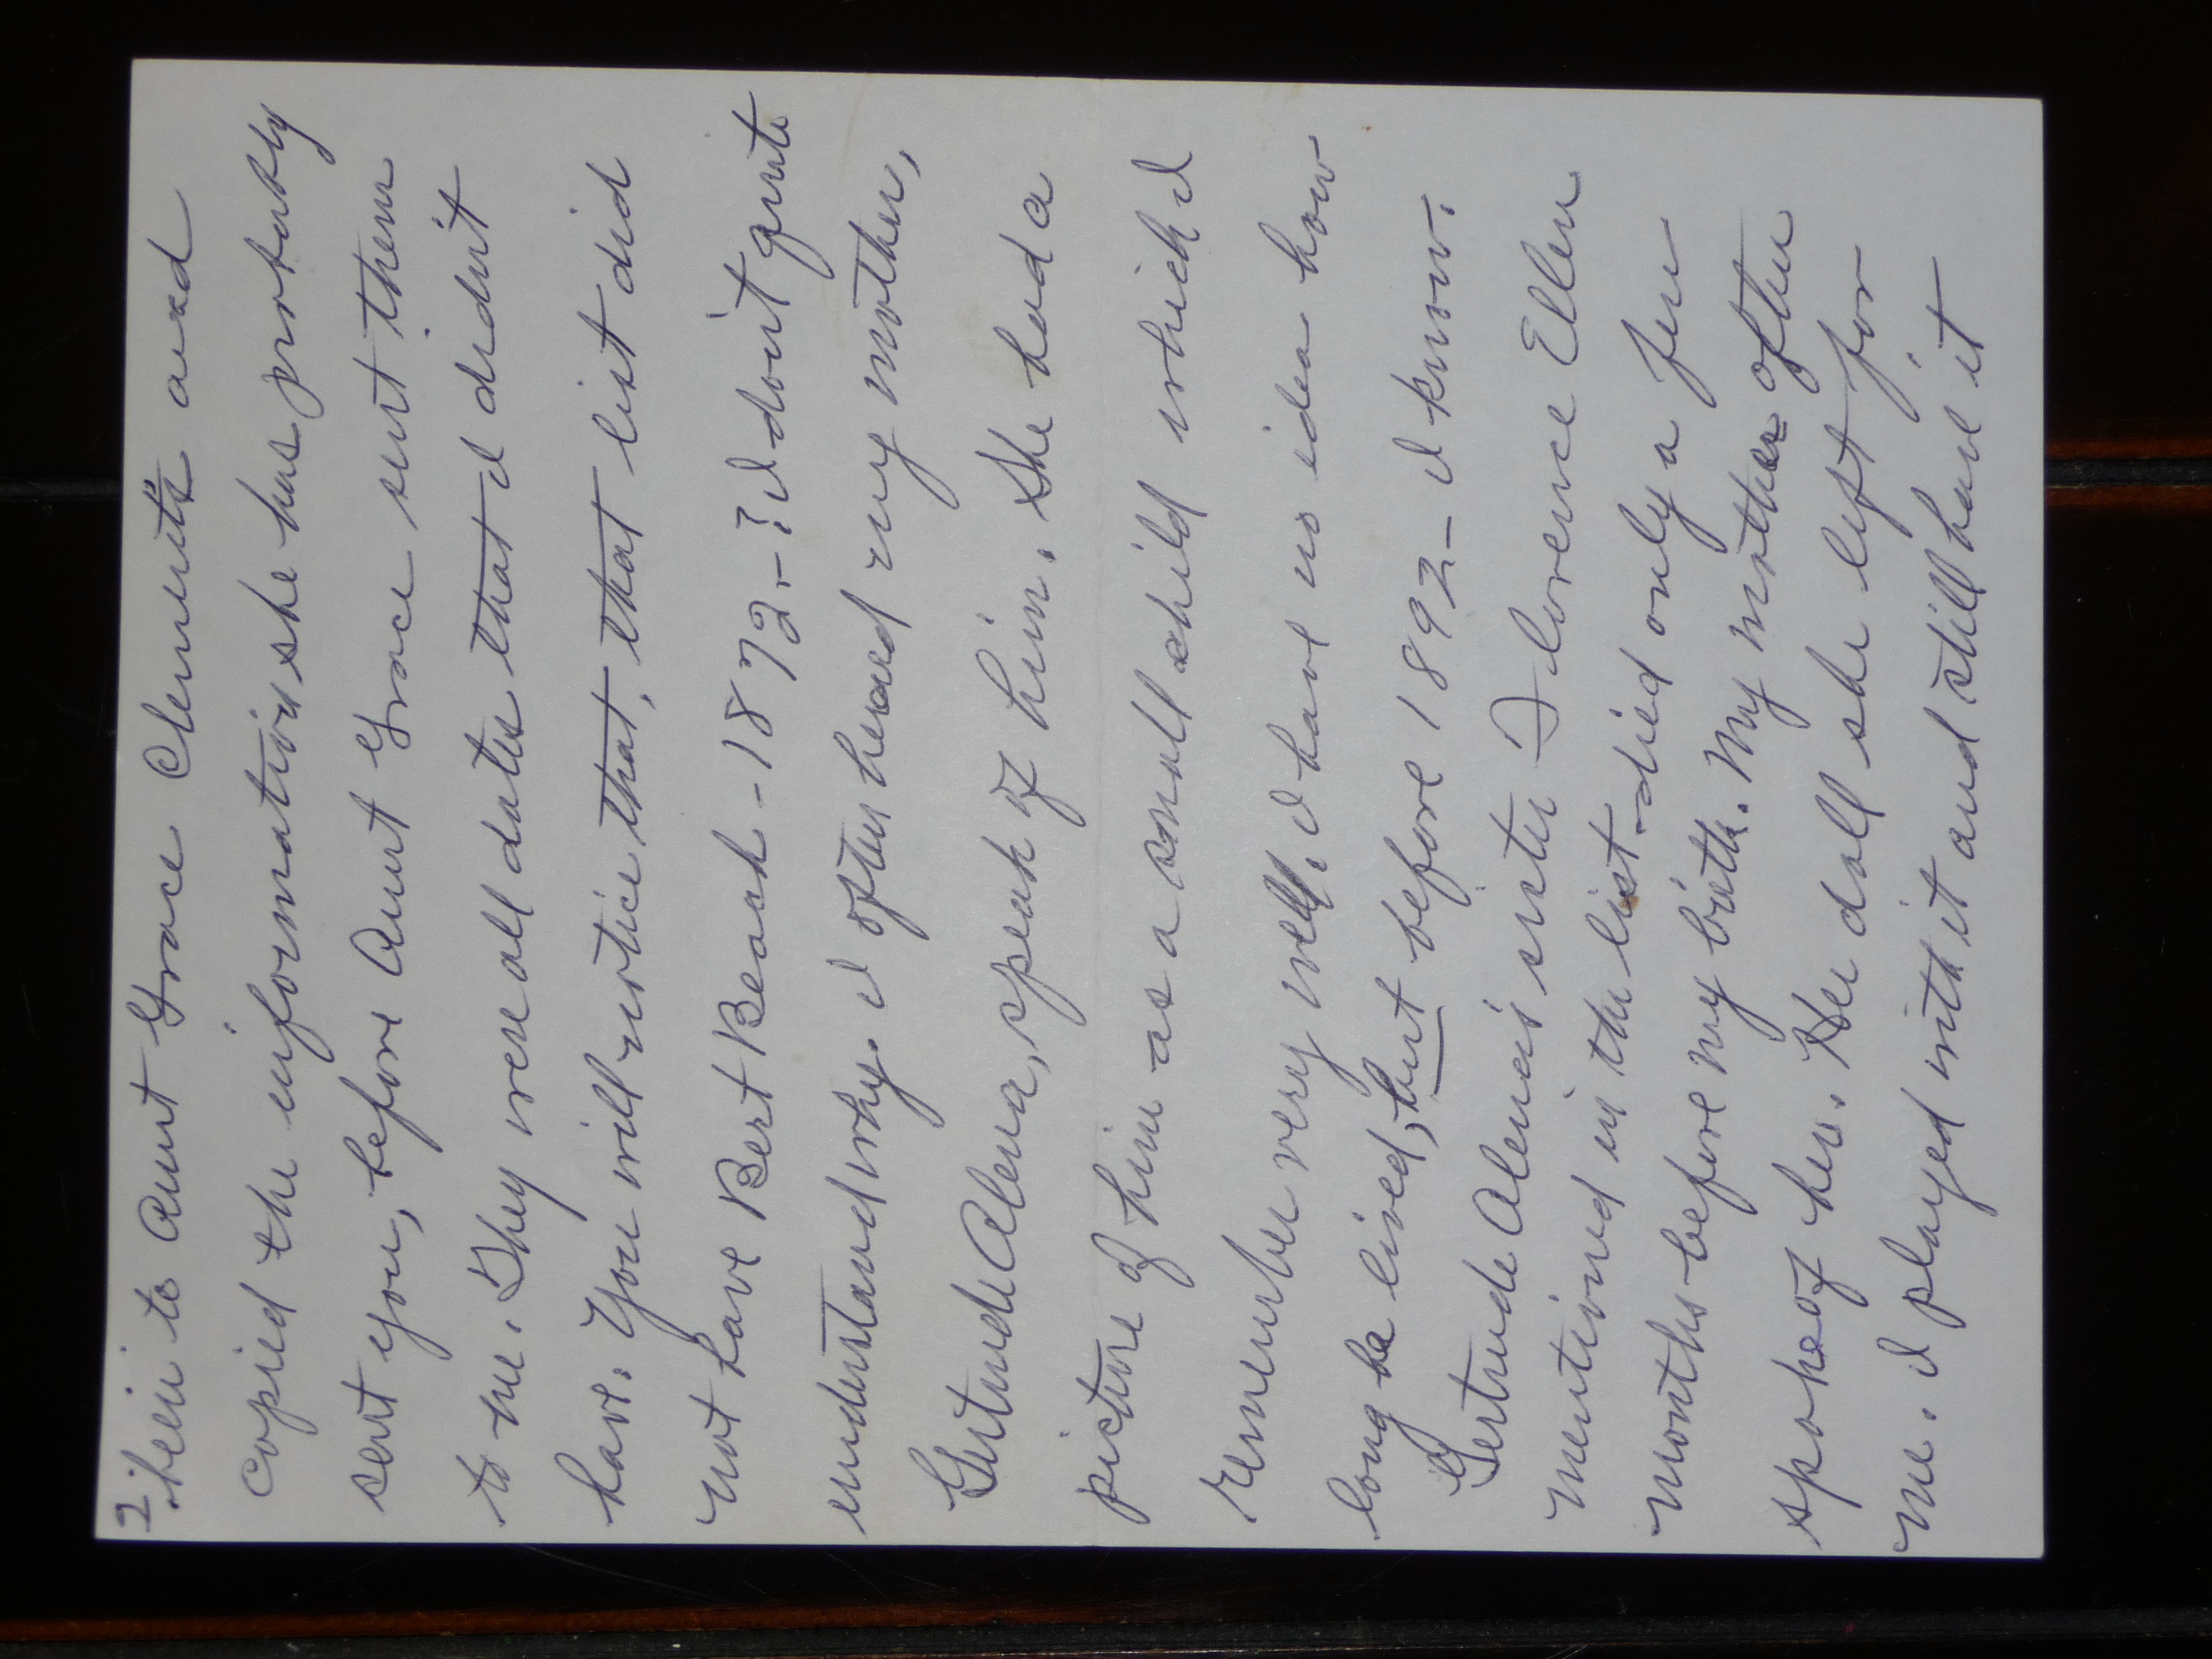 2
been to Aunt Grace Clements and
copied the information she has probably
sent you, before Aunt Grace sent them
to me. They were all dates that I didn't
have. You will notice that, that list did
not have Bert Beach - 1872 - ? I don't quite
understand why. I often heard my mother,
Gertrude Alena, speak of him. She had a
picture of him as a small child which I
remember very well. I have no idea how
long he lived, but before 1892 - I know.
Gertrude Alena's sister Florence Ellen
mentioned in the list - died only a few
months before my birth. My mother often
spoke of her. Her doll she left for
me. I played with it and still have it